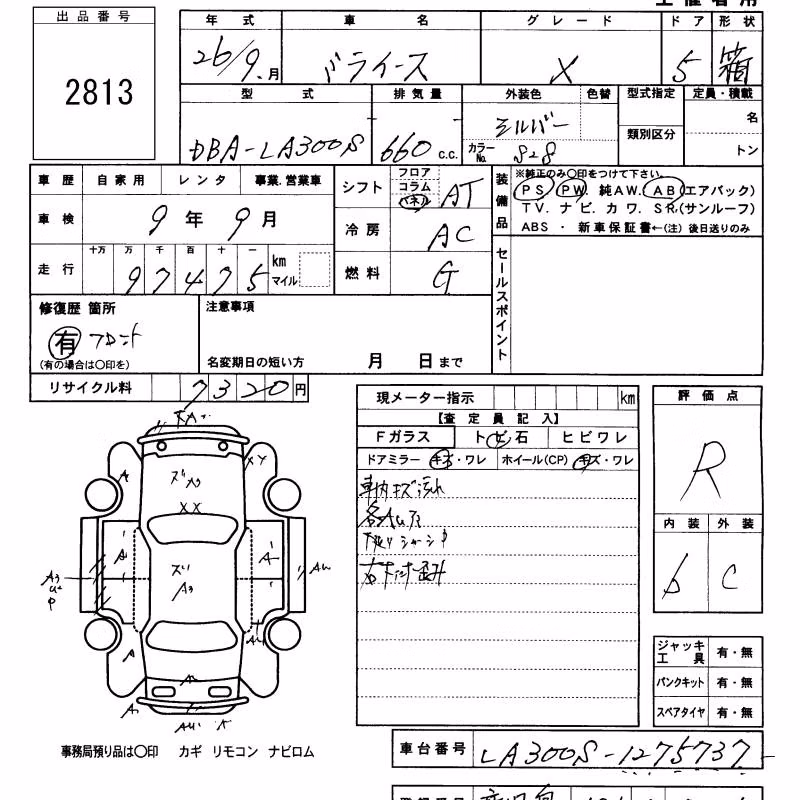 出品番号
2813
年式 車名 グレード ドア 形状
26/9.月 ミライース X 5 箱
型式 排気量 外装色 色替 型式指定 定員・積載
DBA-LA300S 660 c.c. シルバー 類別区分 名
カラーNo. S28 トン
車歴 自家用 レンタ 事業.営業車
車検 9年9月
走行 十万 万 千 百 十 一
97475 km マイル
シフト フロア コラム パネル AT
冷房 AC
燃料 G
装備品
※純正のみ〇印をつけて下さい。
PS PW 純AW. AB(エアバック)
TV. ナビ. カワ. SR.(サンルーフ)
ABS・新車保証書←(注) 後日送りのみ
セールスポイント
修復歴 箇所
有 フロント
(有の場合は〇印を)
注意事項
名変期日の短い方 月 日まで
リサイクル料 7320円
現メーター指示 km
【査定員記入】
Fガラス トビ石 ヒビワレ
ドアミラー キズ・ワレ ホイール(CP) キズ・ワレ
車内キズ汚れ
各AU万
下廻りシャーシ
評価点
R
内装 外装
b C
ジャッキ工具 有・無
パンクキット 有・無
スペアタイヤ 有・無
A
XY
XX
A
A
A3
A3
AW
A
事務局預り品は〇印 カギ リモコン ナビロム
車台番号 LA300S-1275737